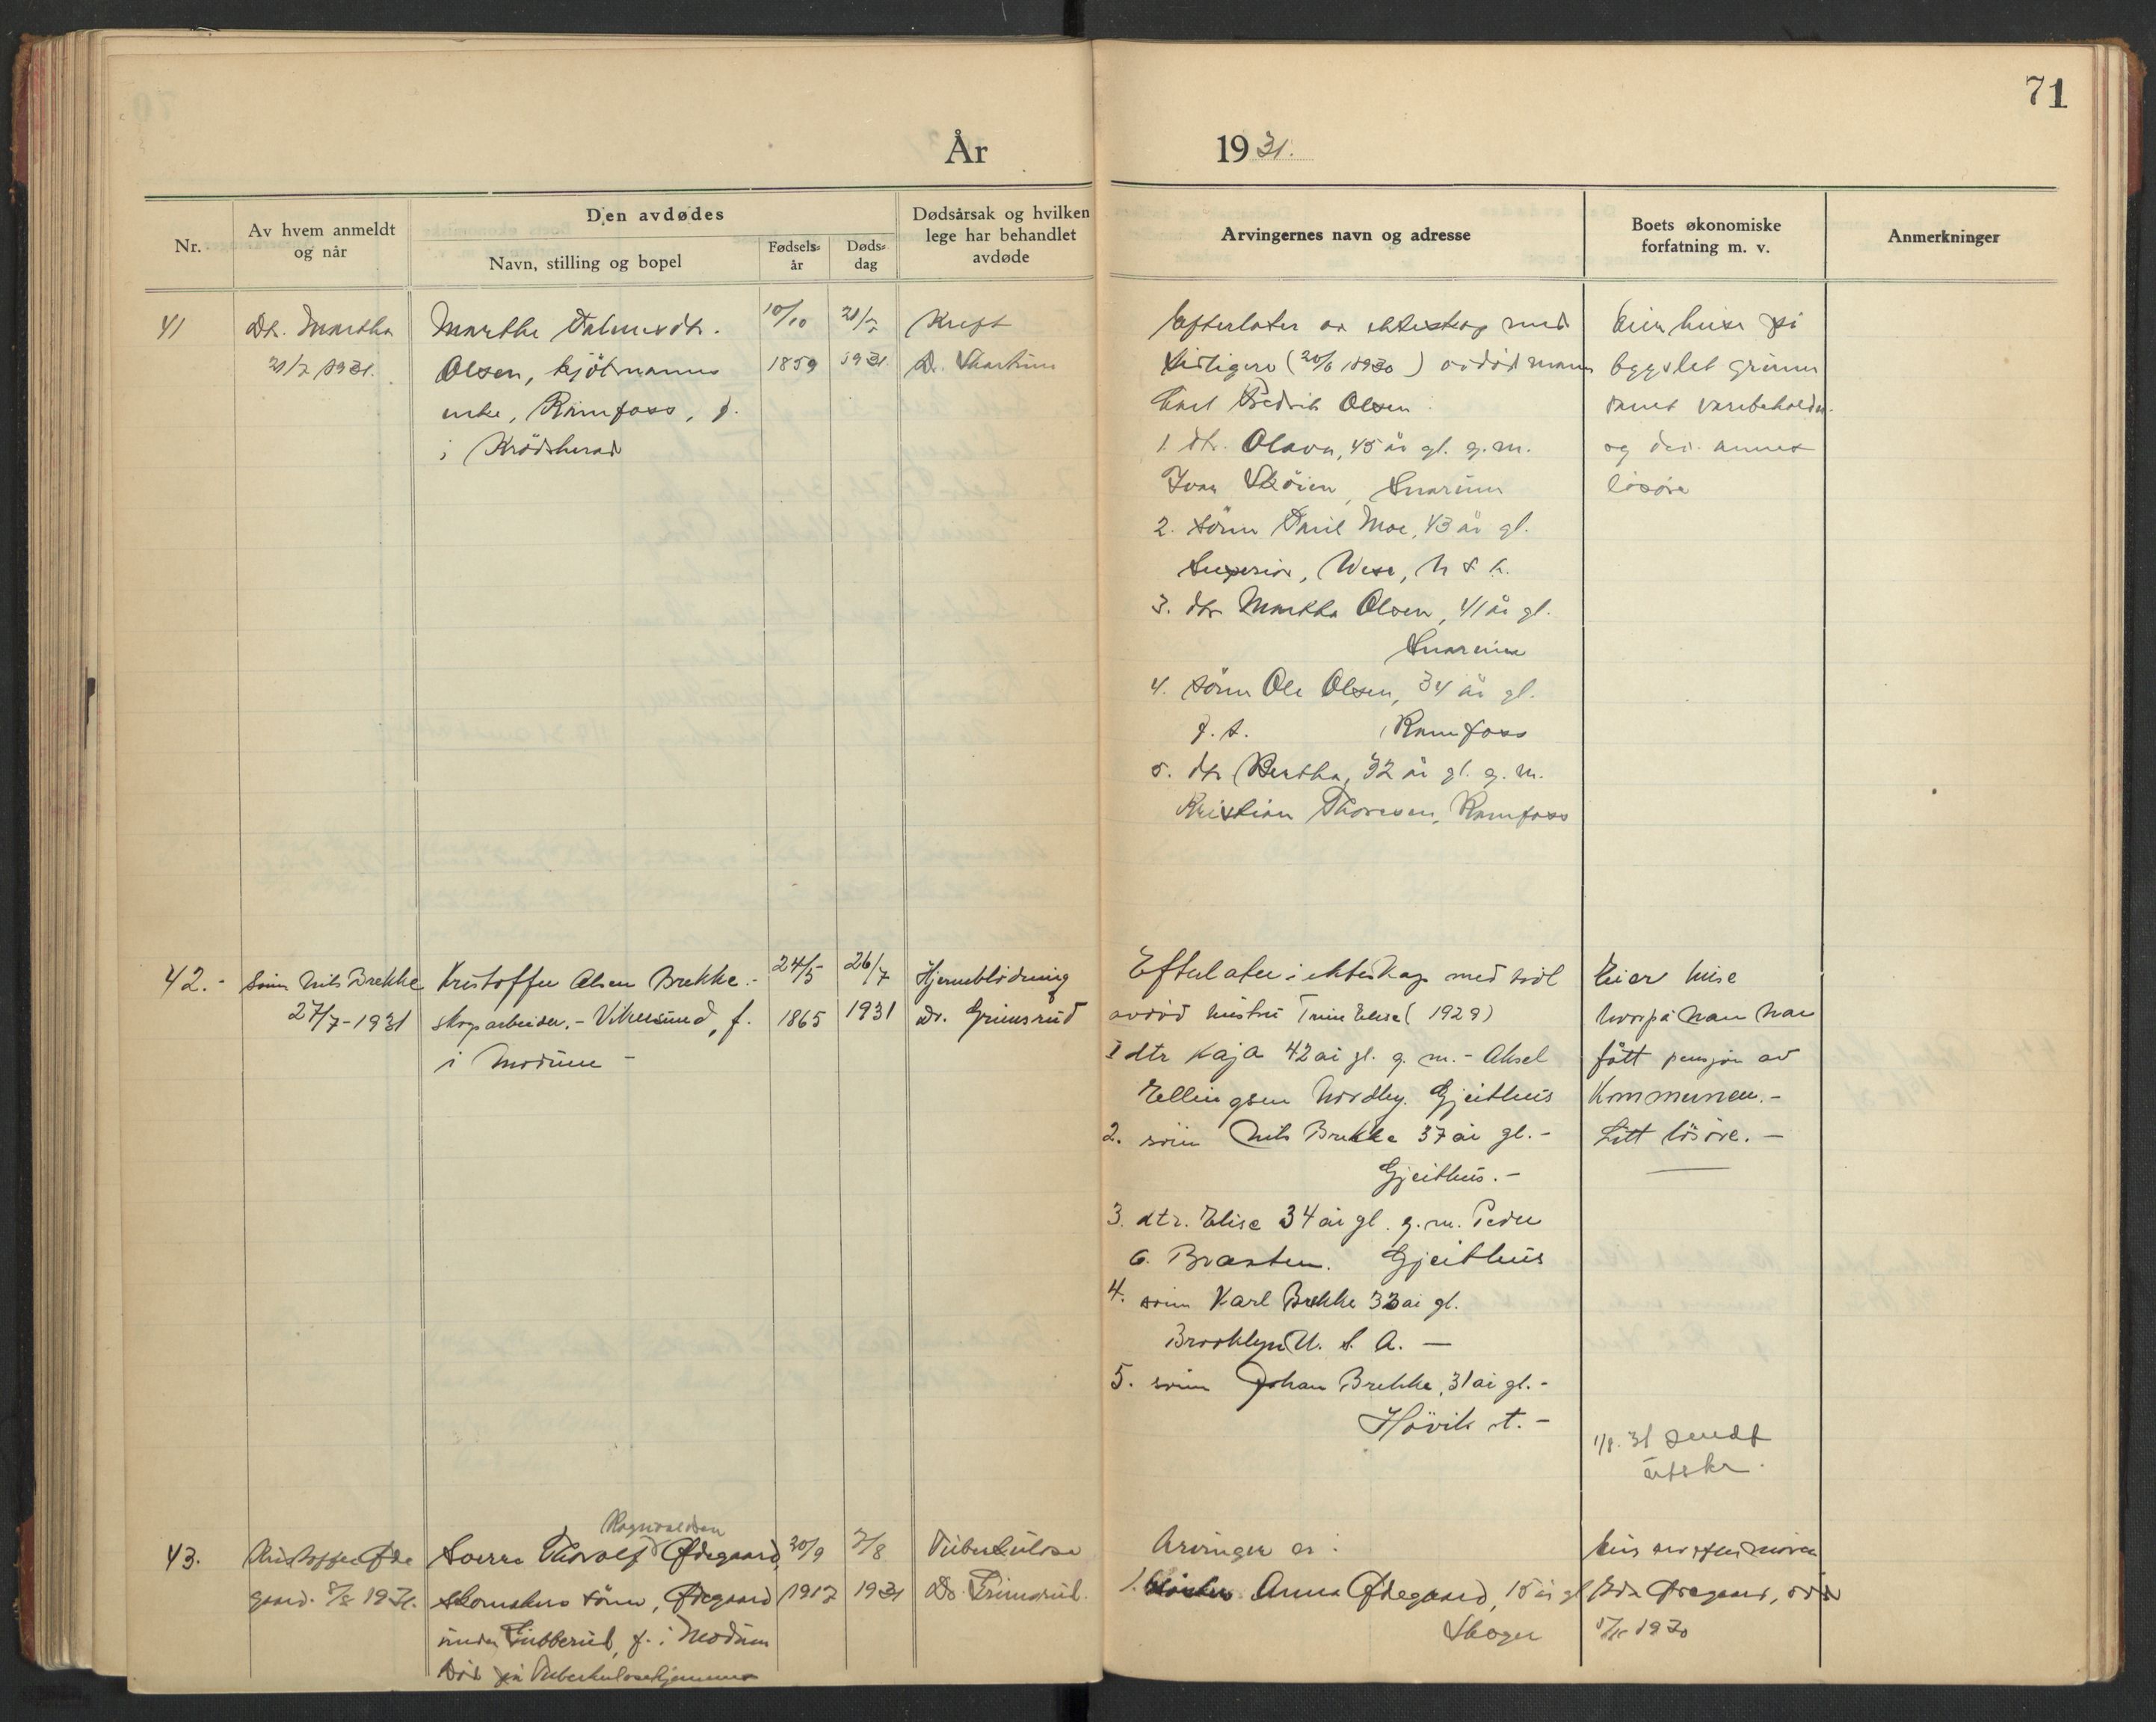 71
År 1931.
Nr.
Av hvem anmeldt
og når
Den avdødes
Navn, stilling og bopel
Fødsels-
år
Døds-
dag
Dødsårsak og hvilken
lege har behandlet
avdøde
Arvingernes navn og adresse
Boets økonomiske
forfatning m. v.
Anmerkninger
41
Dt. Martha
1931.
Marthe
Olsen, kjöbmanns
enke, Ramfoss, f.
i Krödsherad
10/10
1859
21/7
1931
Kreft
D.
Efterlater av ekteskap med
tidligere (20/6 1930) avdöd mann
Carl Fredrik Olsen
1. dtr. Olava, 45 år gl. g. m.
Ivar Sköien, Snarum
2. sönn Emil Moe, 43 år gl.
Superior, Wesc, U S A.
3. dtr Martha Olsen, 41 år gl.
Snarum
4. sönn Ole Olsen, 34 år gl.
f. t. Ramfoss
5. dtr Bertha, 32 år gl. g. m.
Kristian Thoresen, Ramfoss
Eier huse på
bygslet grunn
samt varebeholdn.
og div. annet
lösöre
42.-
Sönn Nils Brekke
27/7-1931
Kristoffer Olsen Brekke.-
skogsarbeider.- Vikersund, f.
i Modum -
24/5
1865
26/7
1931
Hjerneblödning
Dr. Grimsrud
Efterlater i ekteskap med tidl
avdöd hustru Trine Elise (1929)
1 dtr Kaja 42 år gl. g. m.- Aksel
Ellingsen Nordby. Gjeithus
2. sönn Nils Brekke 37 år gl.-
Gjeithus.-
3. dtr. Elise 34 år gl. g. m. Peder
O. Braaten. Gjeithus
4. sönn Karl Brekke 33 år gl.
Brooklyn U. S. A. —
5. sönn Johan Brekke, 31 år gl.-
Hövik st.-
Eier huse
hvorpå han har
fått pensjon av
Kommunen.-
Litt lösöre.—
1/8. 31 sendt
utskr.
43.
Kristoffer Øde
gaard. 5/8 1931.
Ragnvaldsen
Sverre Thorolf Ødegaard,
skomakers sönn, Ødegaard
under Gubberud, f. i Modum
Död på Tuberkulosehjemmet
30/9
1917
2/8
1931
Tuberkulose
Dr. Grimsrud.
Arvinger er:
1. Anna Ødegaard, 15 år gl
Skoger
Ødegaard, död
1930